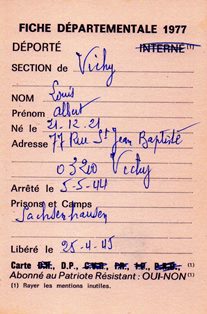 FICHE DÉPARTEMENTALE 1977
DÉPORTÉ INTERNÉ (1)
SECTION de Vichy
NOM Louis
Prénom Albert
Né le 21.12.21
Adresse 77 Rue St Jean Baptiste
03200 Vichy
Arrêté le 5-5-44
Prisons et Camps
Sachsenhausen
Libéré le 25-4-45
Carte D.P., (1)
Abonné au Patriote Résistant : OUI-NON (1)
(1) Rayer les mentions inutiles.